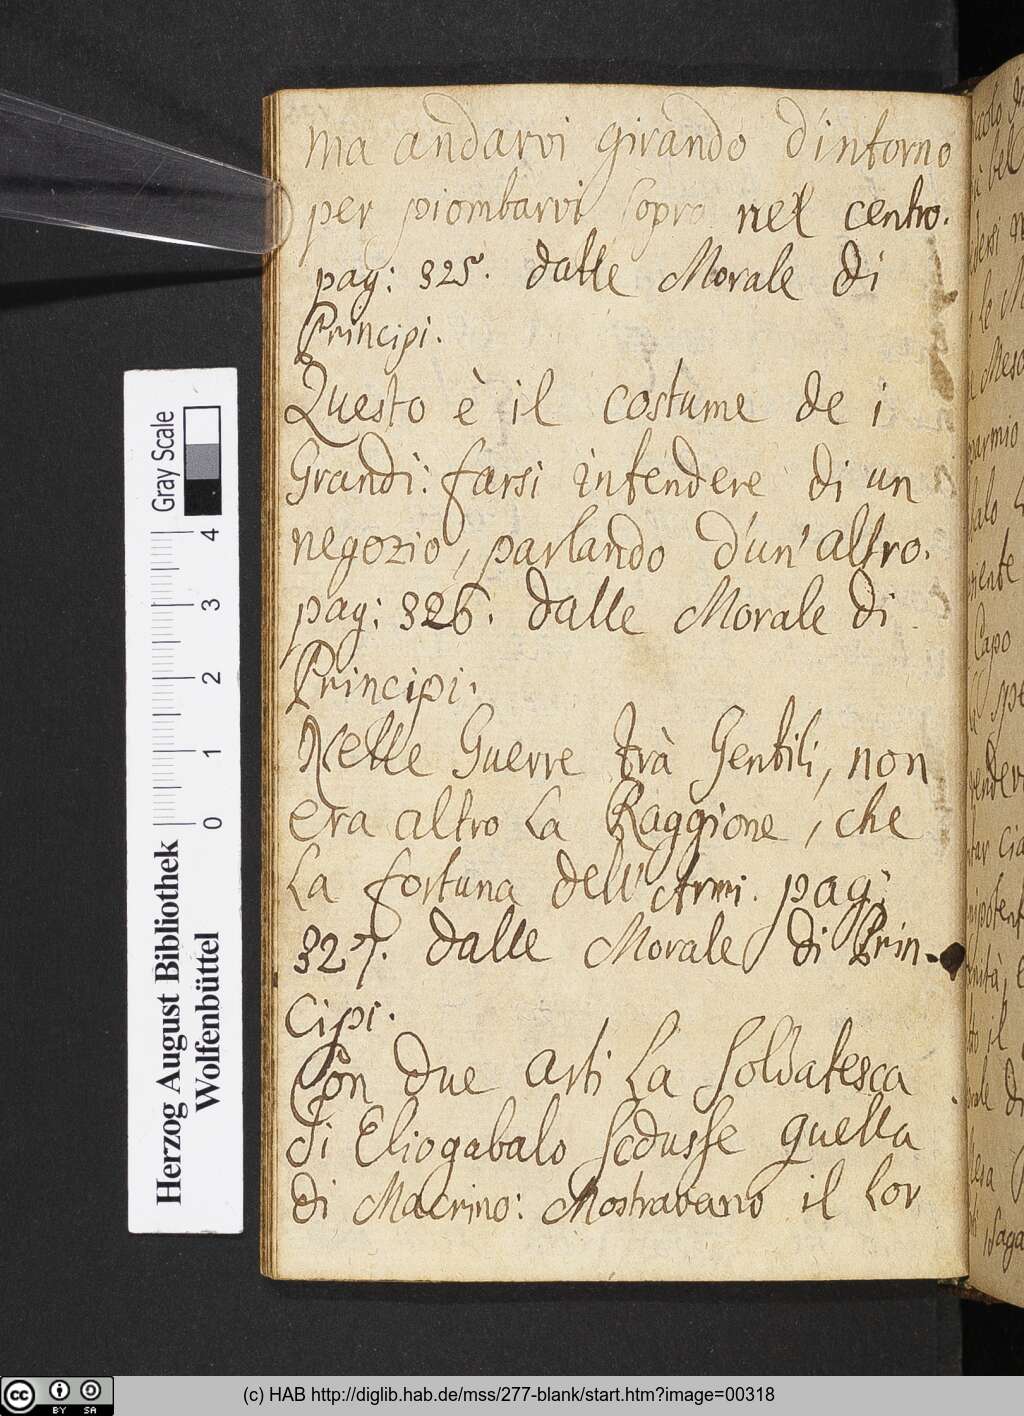 ma andarvi girando d'intorno
per piombarvi sopra nel centro.
pag: 325. dalle Morale di
Principi.
Questo è il costume de i
Grandi: farsi intendere di un
negozio, parlando d'un'altro.
pag: 326. dalle Morale di
Principi.
Nelle Guerre trà Gentili, non
era altro la Raggione, che
la fortuna dell'Armi. pag:
327. dalle Morale di Prin-
cipi.
Con due arti la Soldatesca
di Eliogabalo sedusse quella
di Macrino: Mostravano il lor
Gray Scale
0 1 2 3 4
Herzog August Bibliothek
Wolfenbüttel
cc BY SA
(c) HAB http://diglib.hab.de/mss/277-blank/start.htm?image=00318